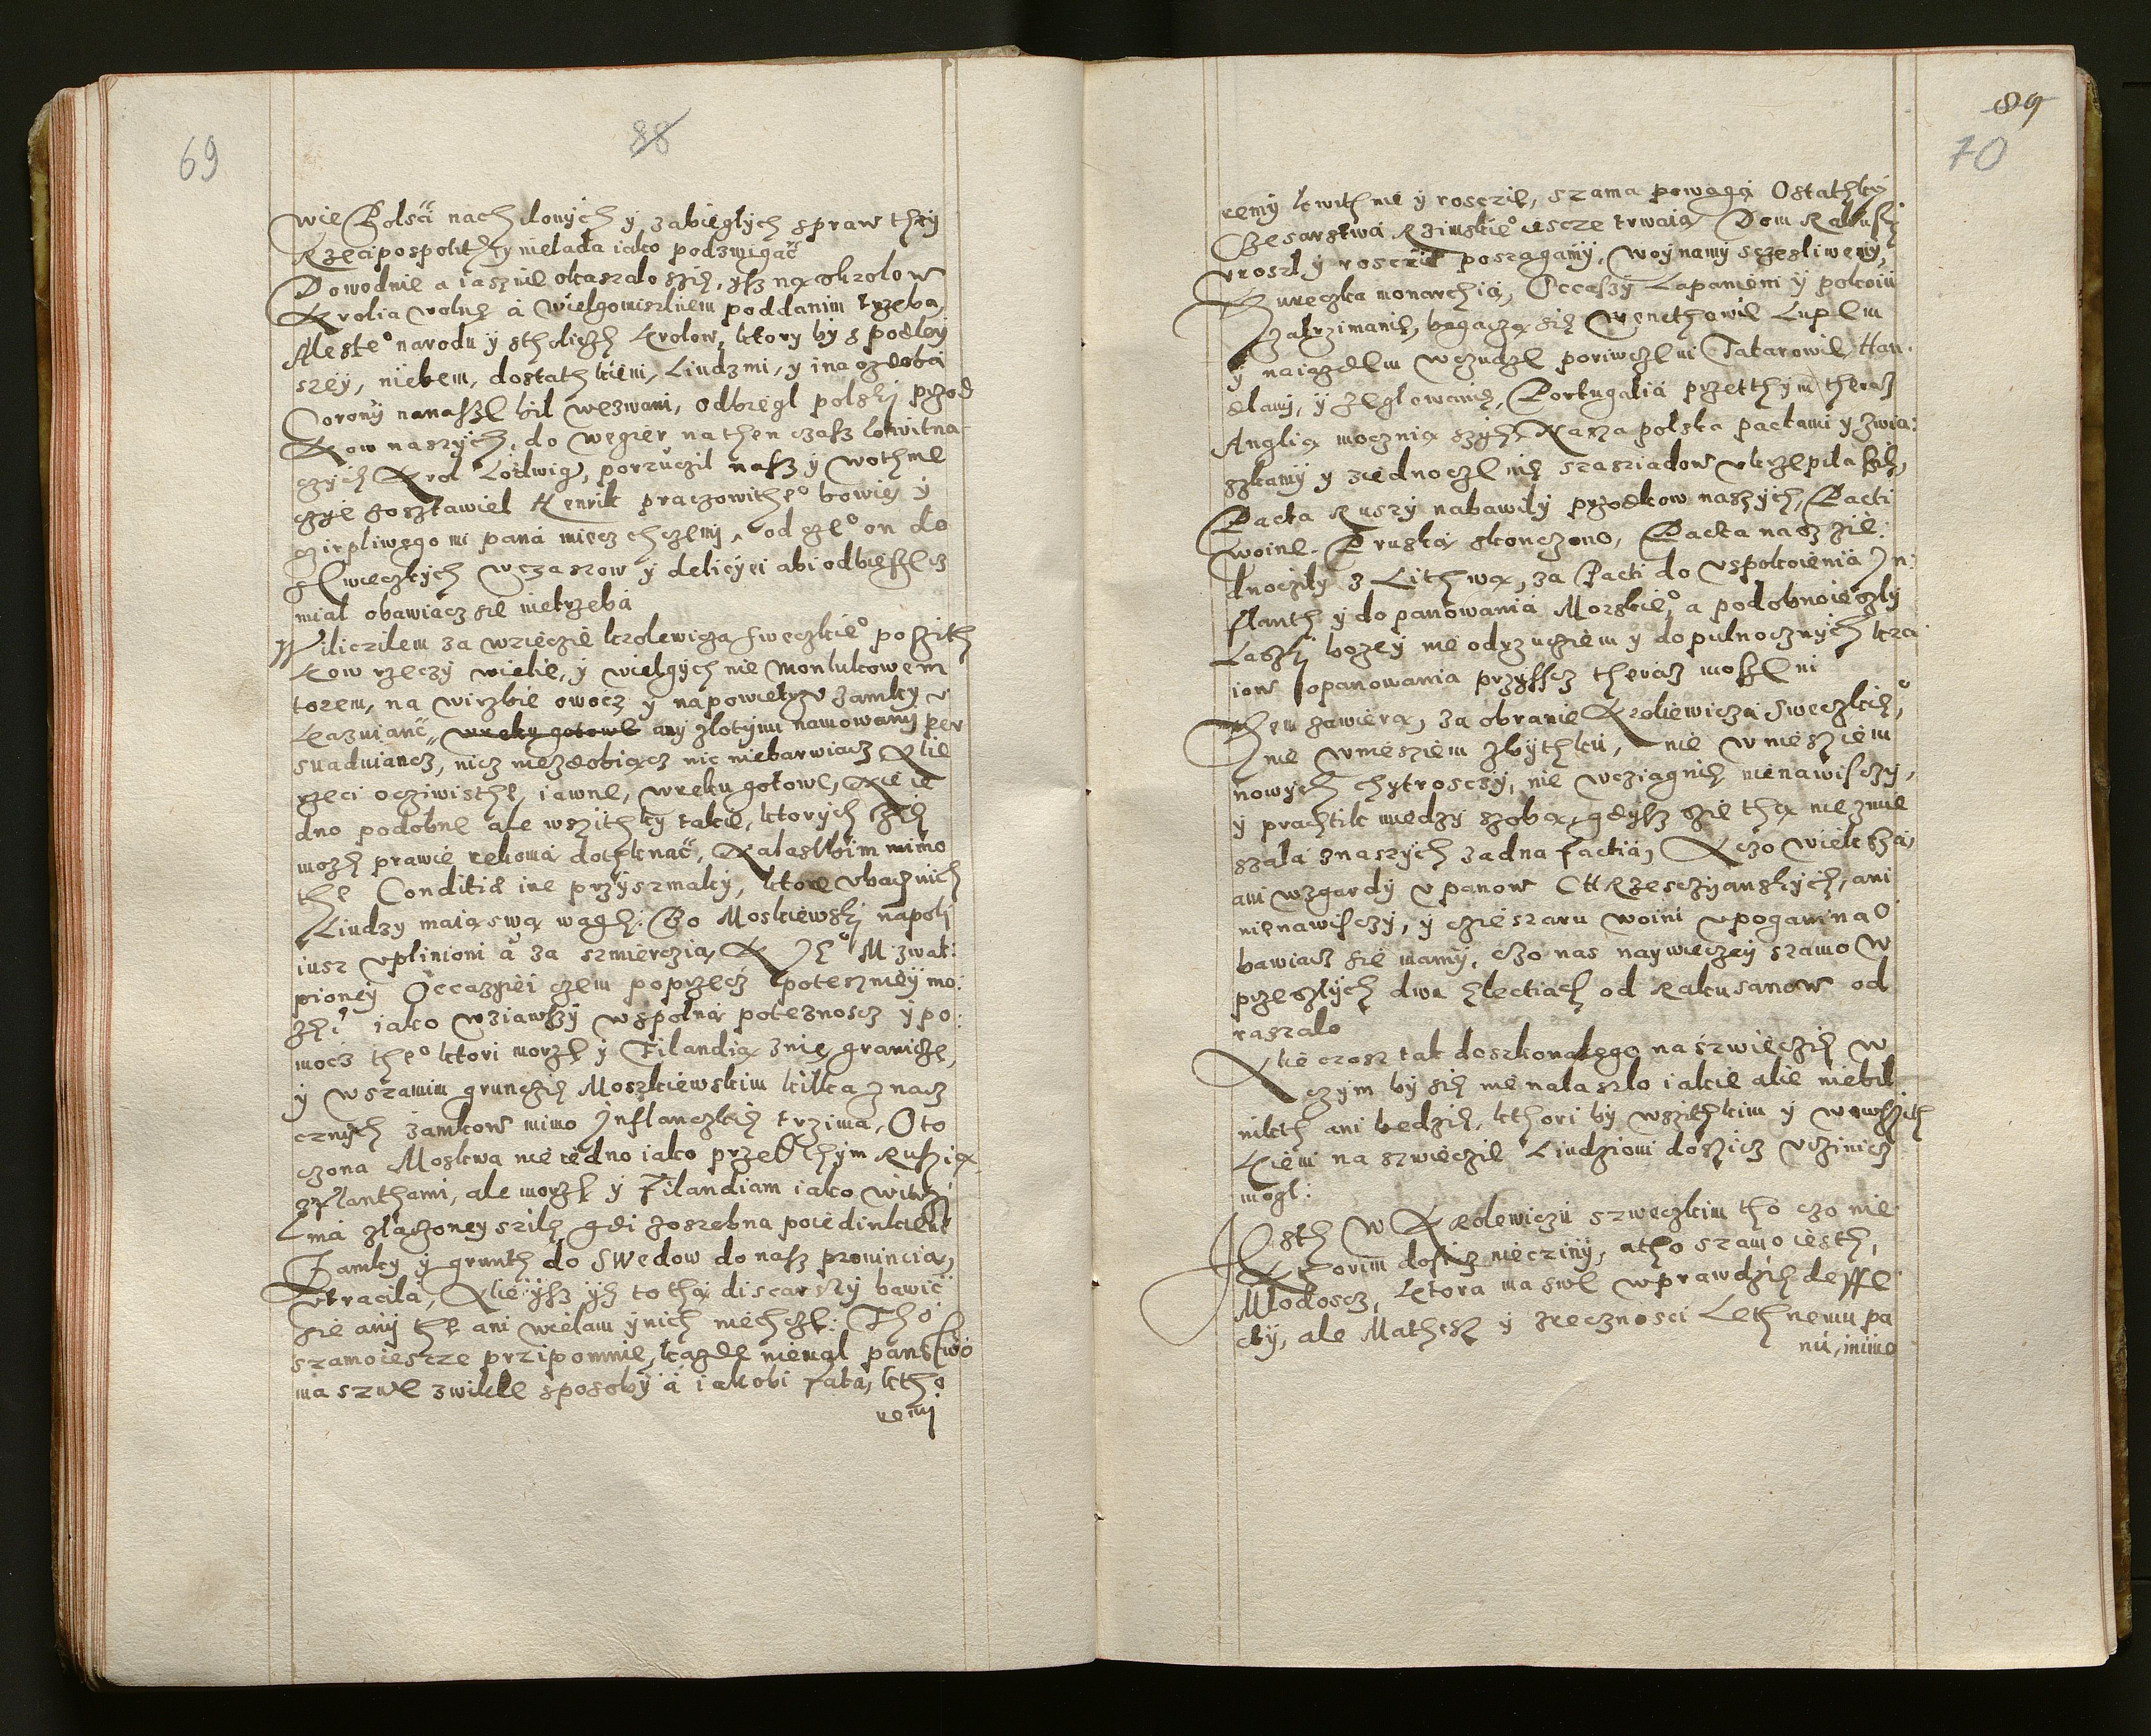 69
88
wie Polscā nachilonych y zabiegłych spraw they
Rzeciposspolit nielada iako podzwigać
Dowodnie a iasznie okaszalo szię, ysz na okrolow
Krolia wolnę á wielgomislnem poddanim trzeba,
Aleste° narodu y stholiczh krolow, ktory by s podley
szey, niebem, dostathkiemi, Liudzmi, y ina ozdobá
Corony nanaszę bil wezwani, odbiegl polskj przod
kow naszych, do Wegier na then czasz kwitna
czych Krol Lodwig, porzuczil nasz y wothme
goszławiel Henrik praczowithe° bowię y
czirpliwego mi paná miecz chczemj, od cze° on do
wczaszow y deliciei abi odbieszecz
miał obawiácz sie nietrzebá
Wiliczilem za wzieczie krolewicza sweczkie° poszith
kow rzeczy wielie, y wielgych nie monlukowem
torem, na wirzbie owocz y napowietrzu zamky v
kazuiancz, wreku gotowe any zlotymi namowamy per
suaduiancz, nicz niezdobiącz nic niebarwiacz Alie
rzeci ocziwisthe, iawne, wreku gotowe, Nie ie
dno podobne ale wszithky takie, ktorych szię
możę prawie rekomá dotknąć, Kalasthim mimo
the Conditie ine przyszmaky, ktore vbacznich
Liudzy maią swą wagę: Bo Moskiewskj napoli
iusz vplinioni á za szmierczią K Je° M. zwat:
pioney Occazyei czem poprzecz poteszniey mo:
że? iako wziawszy wspolną poteznoscz y po:
mocz the° ktori morze y Filandią znię graniczę,
y wszamim grunczię Moszkiewskim kilka znacz
cznych zamkow mimo Jnflanczkich trzima, Oto
czona Moskwa nie iedno iako przed thym Ruszią
zflanthami, ale morze y Filandiam iako
ma złączoney szilę gdi zoszebna poiedinkiem
Zamky y grunth do Swedow do nasz prowincią,
vtracila, Alie ysz ych to thą discarszy bawić
sie any the ani wielam ynich niechczę: Tho
szamo iescze przipomnie, każde niemal panstwo
ma szwe zwikle sposoby á iakobi fata, ktho
remj
89
70
remy kwithnie y rosczie, szama powagą Ostathky
Czesarstwá Rzimskie° iescze trwaią Dom Rakusky
vroszl y rosczie poszagamy, woynamy sczesliwemy,
Thureczka monarchia, Occaszy Lapaniem y pokoiu
zatrzimanie, bogaczą się Wenethowie Lupem
y naiazdem wczudze poriwczemi Tatarowie, Han
dlami, y zeglowanię, Portugalia przetthym theraz
Anglia mocznią szych, Nasza polska pactami y zwia:
zkamy y ziednoczenię szasziadow vkrzepila szię,
Pacta Ruszy nabawily przodkow naszych, Pacti
woine Pruską skonczono, Pacta nasz zie:
dnoczily z Lithwą, za Pacti do vspokoienia Jn:
flanth y do panowania Morskie°, a podobno ieszly
Laszkj bozey nie odrzuczem y do pulnocznych kra
iow opanowania przyssz theraz moszeni
them zawierą, za obranie Kroliewicza Sweczkie°,
nie wniesziem zbythku, nie wniesziem
nowych chytrosczy, nie wcziagnię nienawisczy,
y practik miedzy szobą, gdysz szie thą nie zmie
szala znaszych zadna factia, A czo wiekszą,
ani wzgardy v panow CHRzesczyanskych, ani
nienawisczy, y cziesaru woini vpogani na
bawiacz sie mamy, czo nas naywieczey szamo w
przeszlych dwu electiach od Rakusanow od
raszalo
Alie czosz tak doszkonalego na szwieczię w
czym by się nie nalaszlo iakie alie niebil
nikth ani bedzię, kthori by wszithkim y wewszith
kiem na szwieczie Liudziom doszicz vczinicz
mogl:
Jesth w Krolewiczu szweczkim tho czo nie
ktorim dosicz nieczini, atho szamo iesth,
Mlodoscz, ktora ma swe wprawdzię deffe
cty, ale Mathesz y zrecznosci Lethnemu pa
nú, mimo